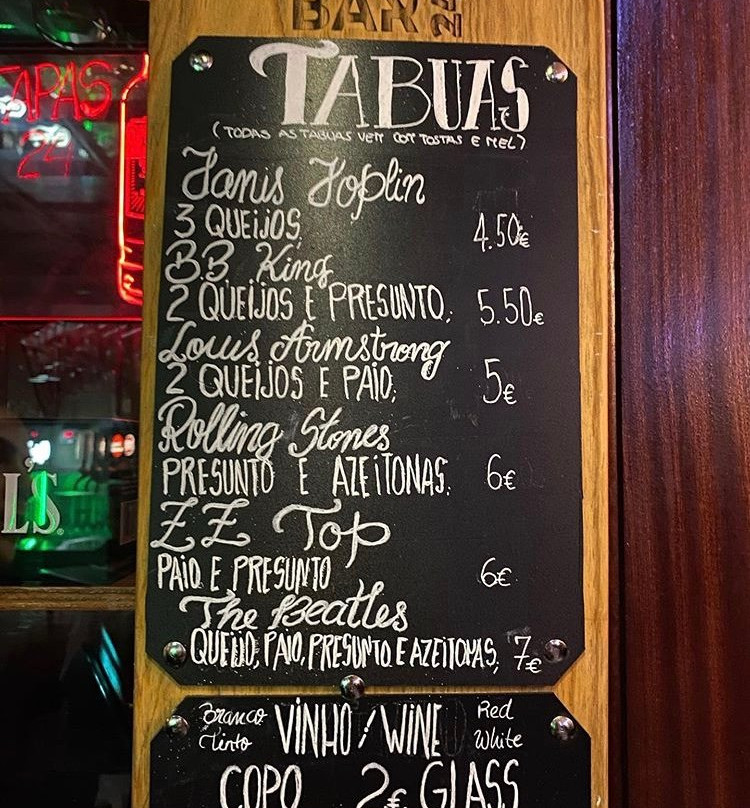 BAR 24
TAPAS
24
TABUAS
(TODAS AS TABUAS VEM COM TOSTAS E MEL)
Janis Joplin
3 QUEIJOS, 4.50€
B.B King
2 QUEIJOS E PRESUNTO, 5.50€
Louis Armstrong
2 QUEIJOS E PAIO, 5€
Rolling Stones
PRESUNTO E AZEITONAS, 6€
ZZ Top
PAIO E PRESUNTO 6€
The Beatles
QUEIJO, PAIO, PRESUNTO E AZEITONAS, 7€
L'S
Branco VINHO/WINE Red
Tinto White
COPO 2€ GLASS